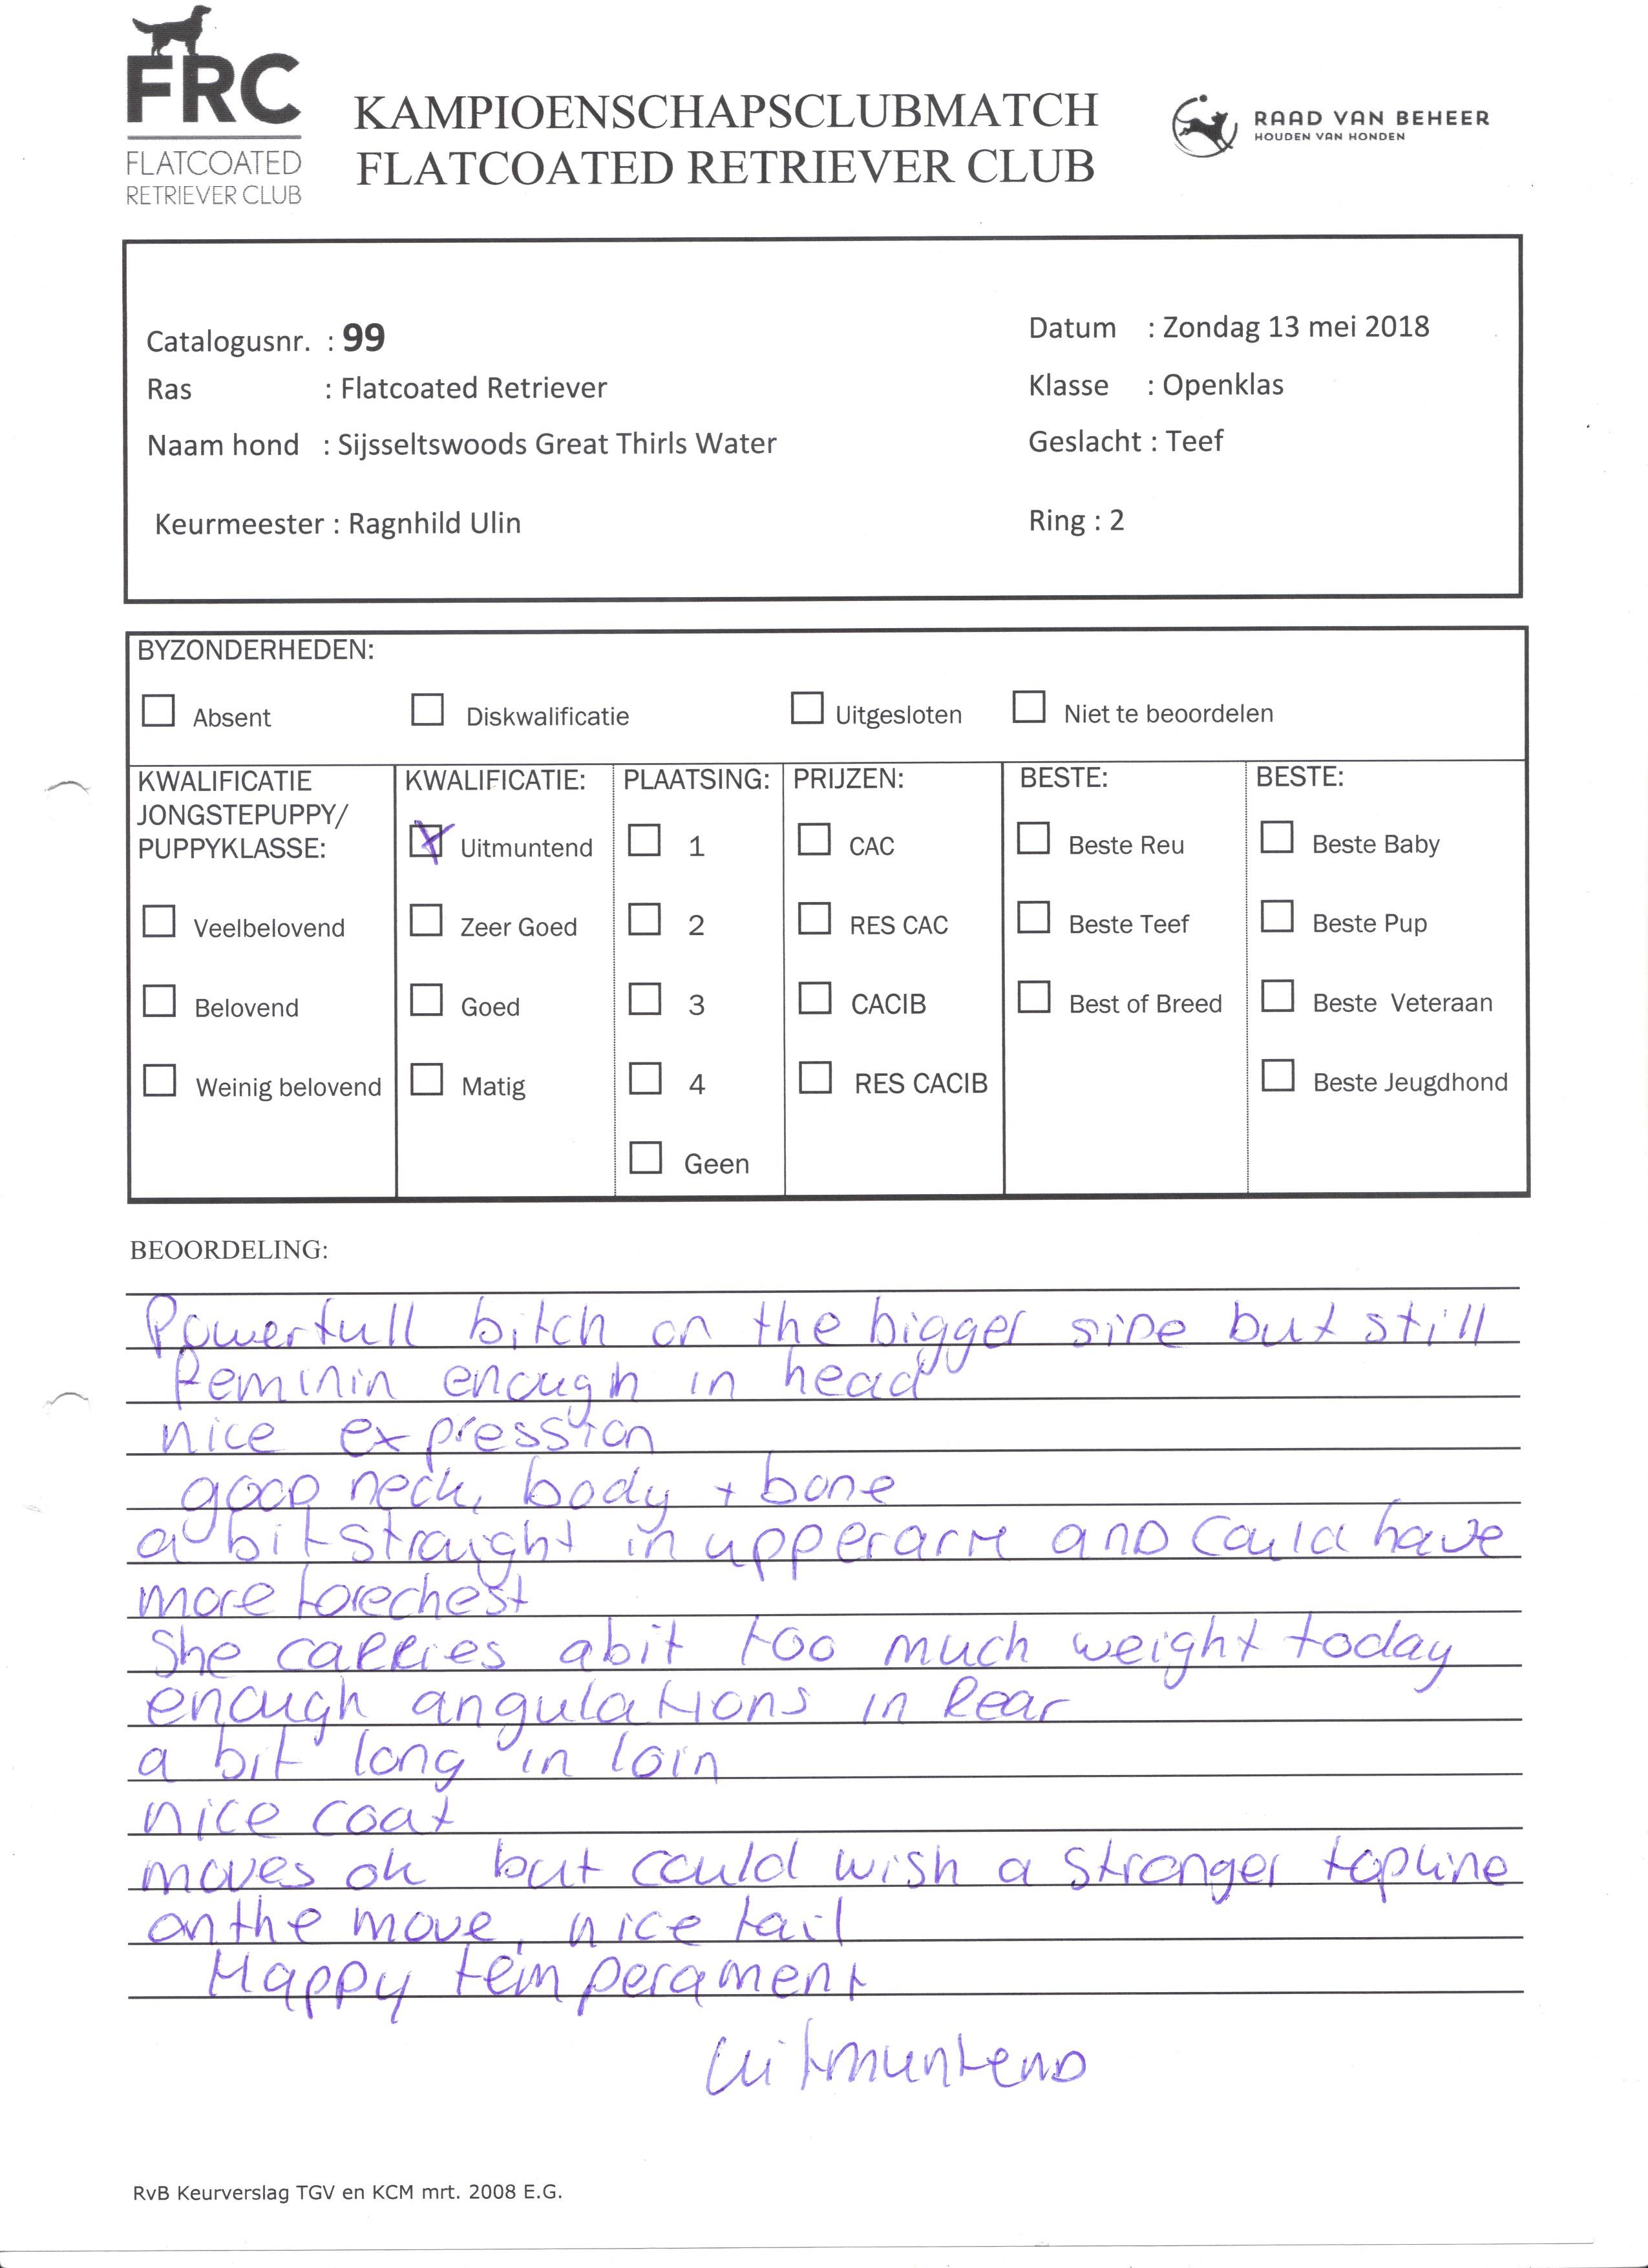 FRC
FLATCOATED
RETRIEVER CLUB
KAMPIOENSCHAPSCLUBMATCH
FLATCOATED RETRIEVER CLUB
RAAD VAN BEHEER
HOUDEN VAN HONDEN
Catalogusnr. : 99
Datum : Zondag 13 mei 2018
Ras : Flatcoated Retriever
Klasse : Openklas
Naam hond : Sijsseltswoods Great Thirls Water
Geslacht : Teef
Keurmeester : Ragnhild Ulin
Ring : 2
BYZONDERHEDEN:
Absent Diskwalificatie Uitgesloten Niet te beoordelen
KWALIFICATIE
JONGSTEPUPPY/
PUPPYKLASSE:
Veelbelovend
Belovend
Weinig belovend
KWALIFICATIE:
Uitmuntend
Zeer Goed
Goed
Matig
PLAATSING:
1
2
3
4
Geen
PRIJZEN:
CAC
RES CAC
CACIB
RES CACIB
BESTE:
Beste Reu
Beste Teef
Best of Breed
BESTE:
Beste Baby
Beste Pup
Beste Veteraan
Beste Jeugdhond
BEOORDELING:
Powerfull bitch on the bigger side but still
feminin enough in head
nice expression
good neck, body + bone
a bit straight in upperarm and could have
more forechest
She carries a bit too much weight today
enough angulations in rear
a bit long in loin
nice coat
moves ok but could wish a stronger topline
on the move, nice tail
Happy temperament
Uitmuntend
RvB Keurverslag TGV en KCM mrt. 2008 E.G.